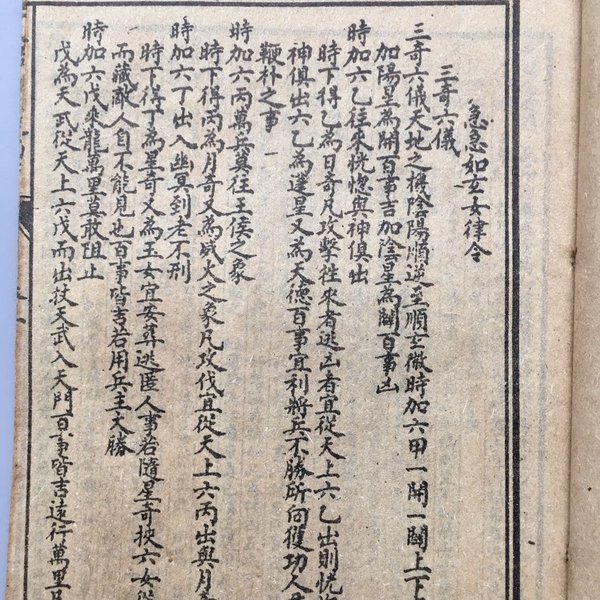 急急如玄女律令
三奇六儀
三奇六儀天地之機陰陽順逆至順玄微時加六甲一開一闔上下
加陽星為開百事吉加陰星為闔百事凶
時加六乙往來恍惚與神俱出
時下得乙為日奇凡攻擊往來者逃亡者宜從天上六乙出則恍
神俱出六乙為蓬星又為天德百事宜利將兵不勝所向獲功人
鞭朴之事
時加六丙萬兵莫往王侯之象
時下得丙為月奇又為威火之象凡攻伐宜從天上六丙出與月
時加六丁出入幽冥到老不刑
時下得丁為星奇又為玉女宜安葬逃匿人事若隨星奇挾六女從
而藏敵人自不能見也百事皆吉若用兵主大勝
時加六戊乘龍萬里莫敢阻止
戊為天武從天上六戊而出挾天武入天門百事皆吉遠行萬里